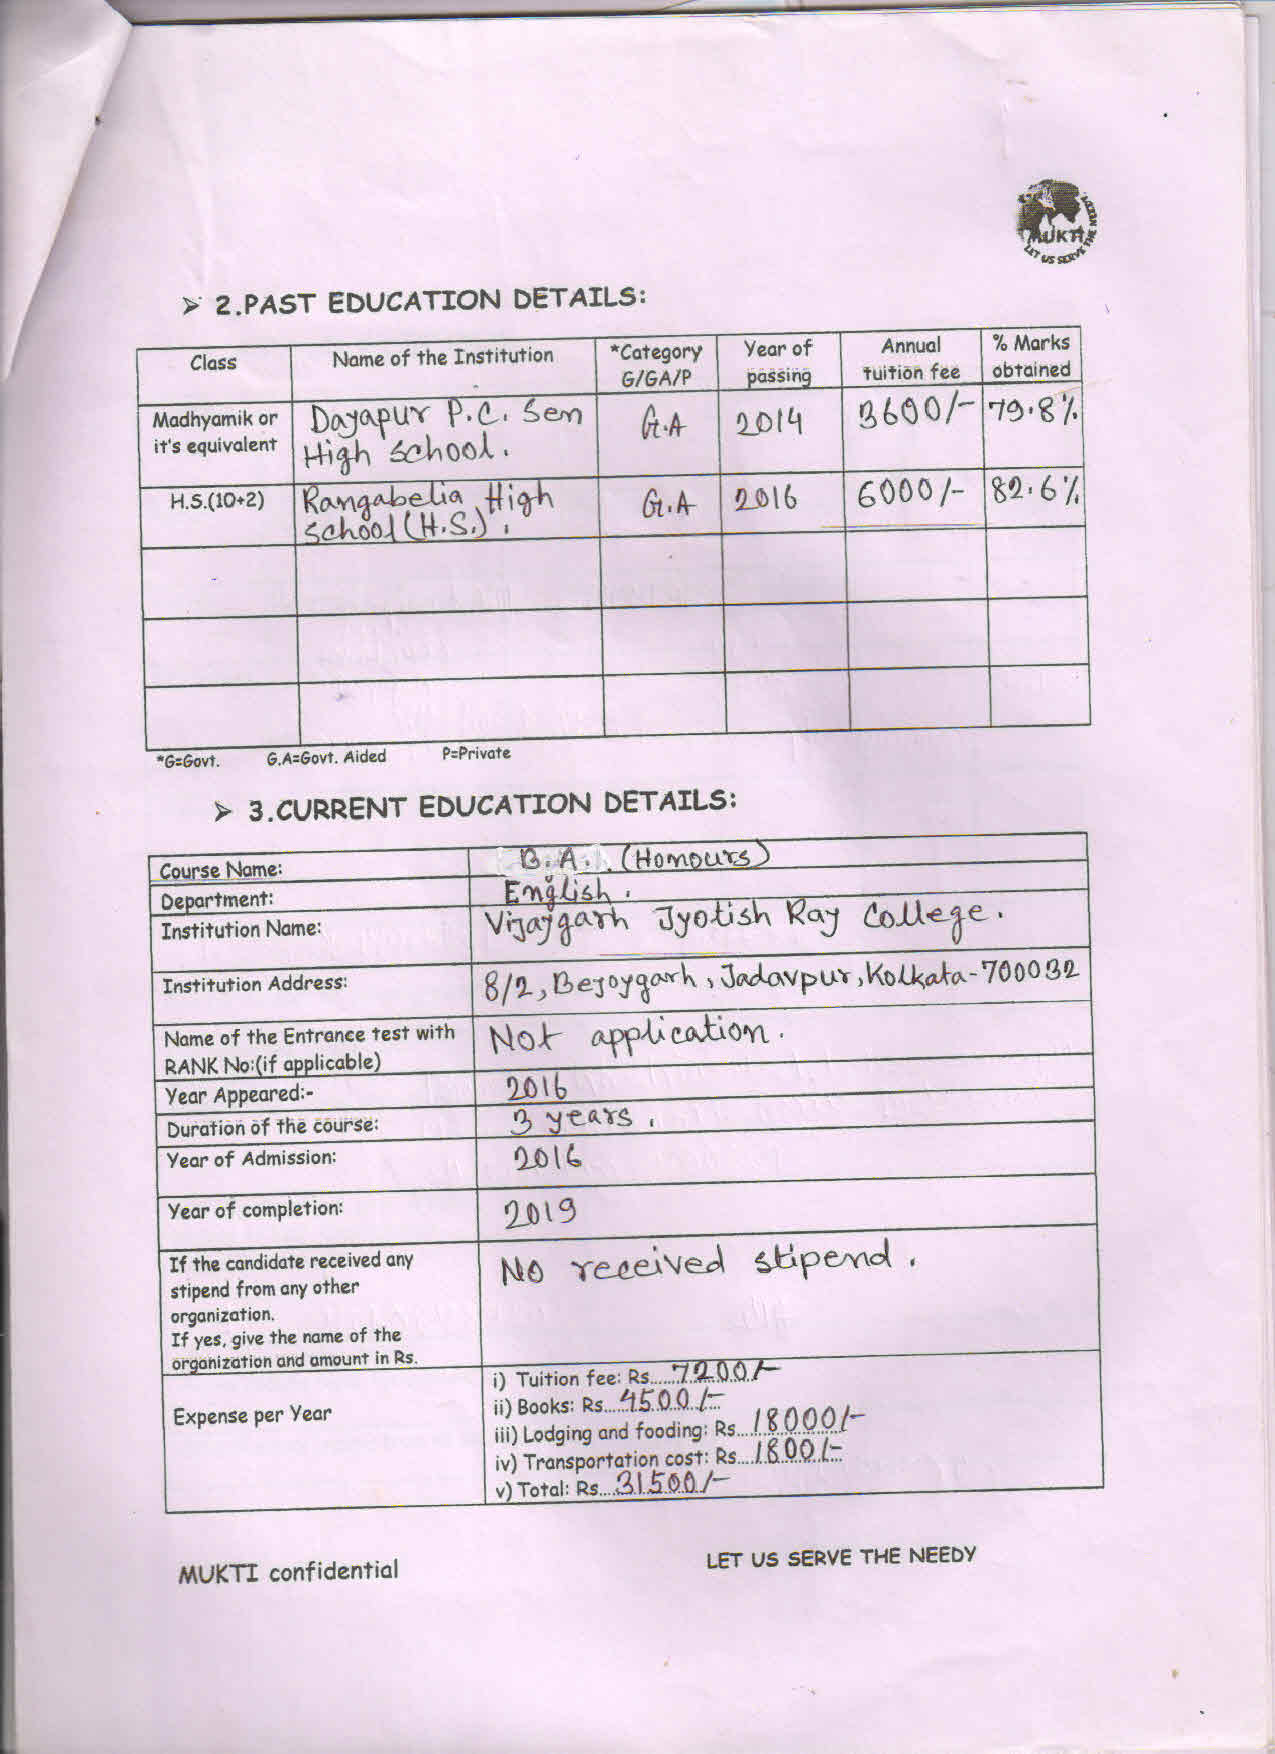 MUKTI
LET US SERVE THE NEEDY
➢ 2.PAST EDUCATION DETAILS:
Class Name of the Institution *Category G/GA/P Year of passing Annual tuition fee % Marks obtained
Madhyamik or it's equivalent Dayapur P.C. Sen High School. G.A 2014 3600/- 79.8%
H.S.(10+2) Rangabelia High School (H.S.). G.A 2016 6000/- 82.6%
*G=Govt. G.A=Govt. Aided P=Private
➢ 3.CURRENT EDUCATION DETAILS:
Course Name: B.A. (Honours)
Department: English.
Institution Name: Vijaygarh Jyotish Ray College.
Institution Address: 8/2, Bejoygarh, Jadavpur, Kolkata-700032
Name of the Entrance test with RANK No:(if applicable) Not application.
Year Appeared:- 2016
Duration of the course: 3 years.
Year of Admission: 2016
Year of completion: 2019
If the candidate received any
stipend from any other
organization.
If yes, give the name of the
organization and amount in Rs.
No received stipend.
Expense per Year
i) Tuition fee: Rs......7200/-
ii) Books: Rs.....4500/-
iii) Lodging and fooding: Rs...18000/-
iv) Transportation cost: Rs....1800/-
v) Total: Rs....31500/-
MUKTI confidential
LET US SERVE THE NEEDY